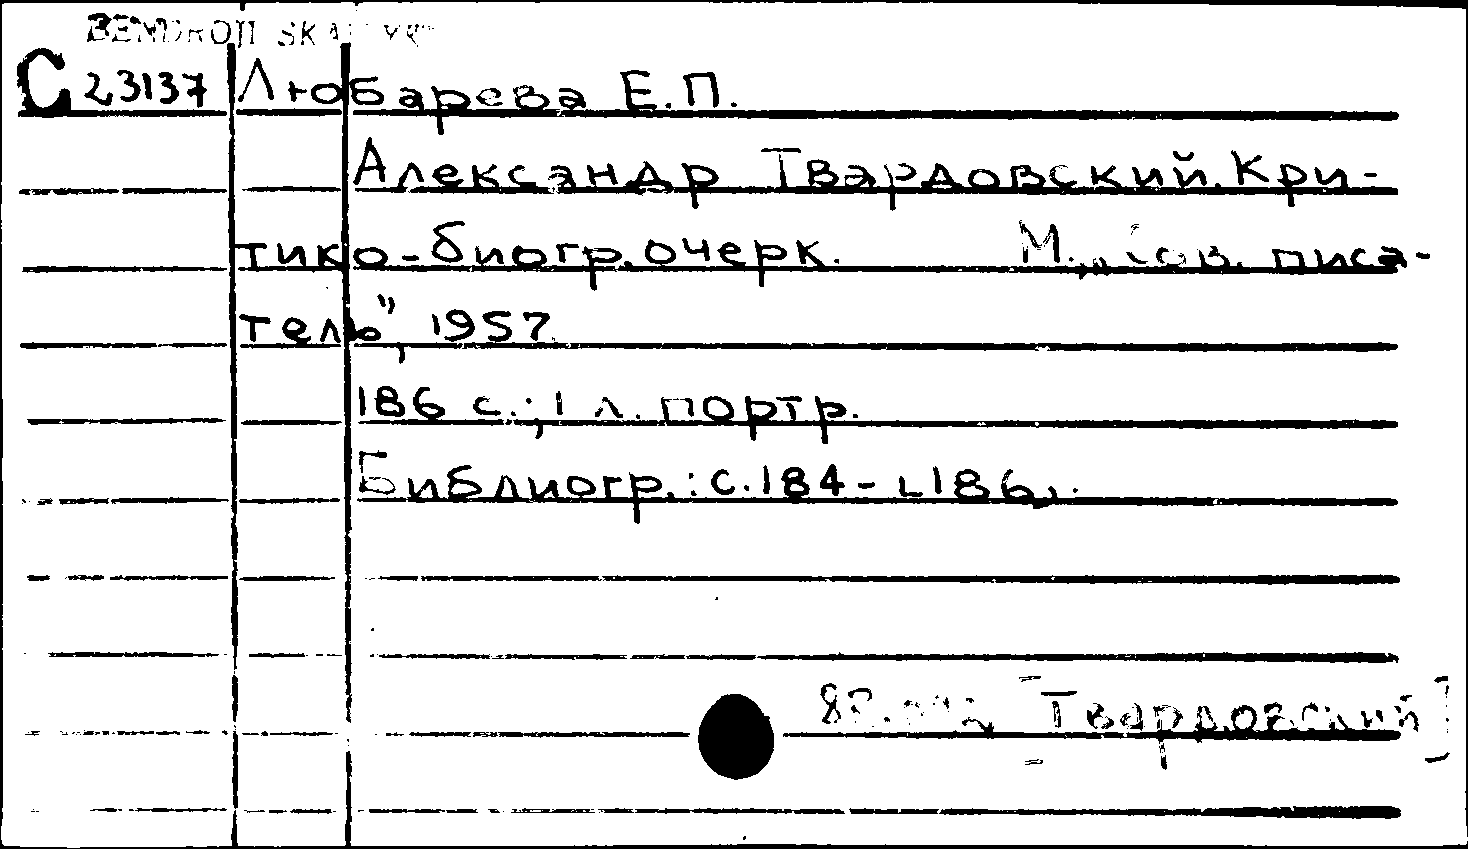 BENDROJI
C 23137 Любарева Е.П.
Александр Твардовский. Кри-
тико-биогр. очерк. М., „Сов. писа-
тель", 1957.
186 с.; 1 л. портр.
Библиогр.: с. 184-[186].
[Твардовский]